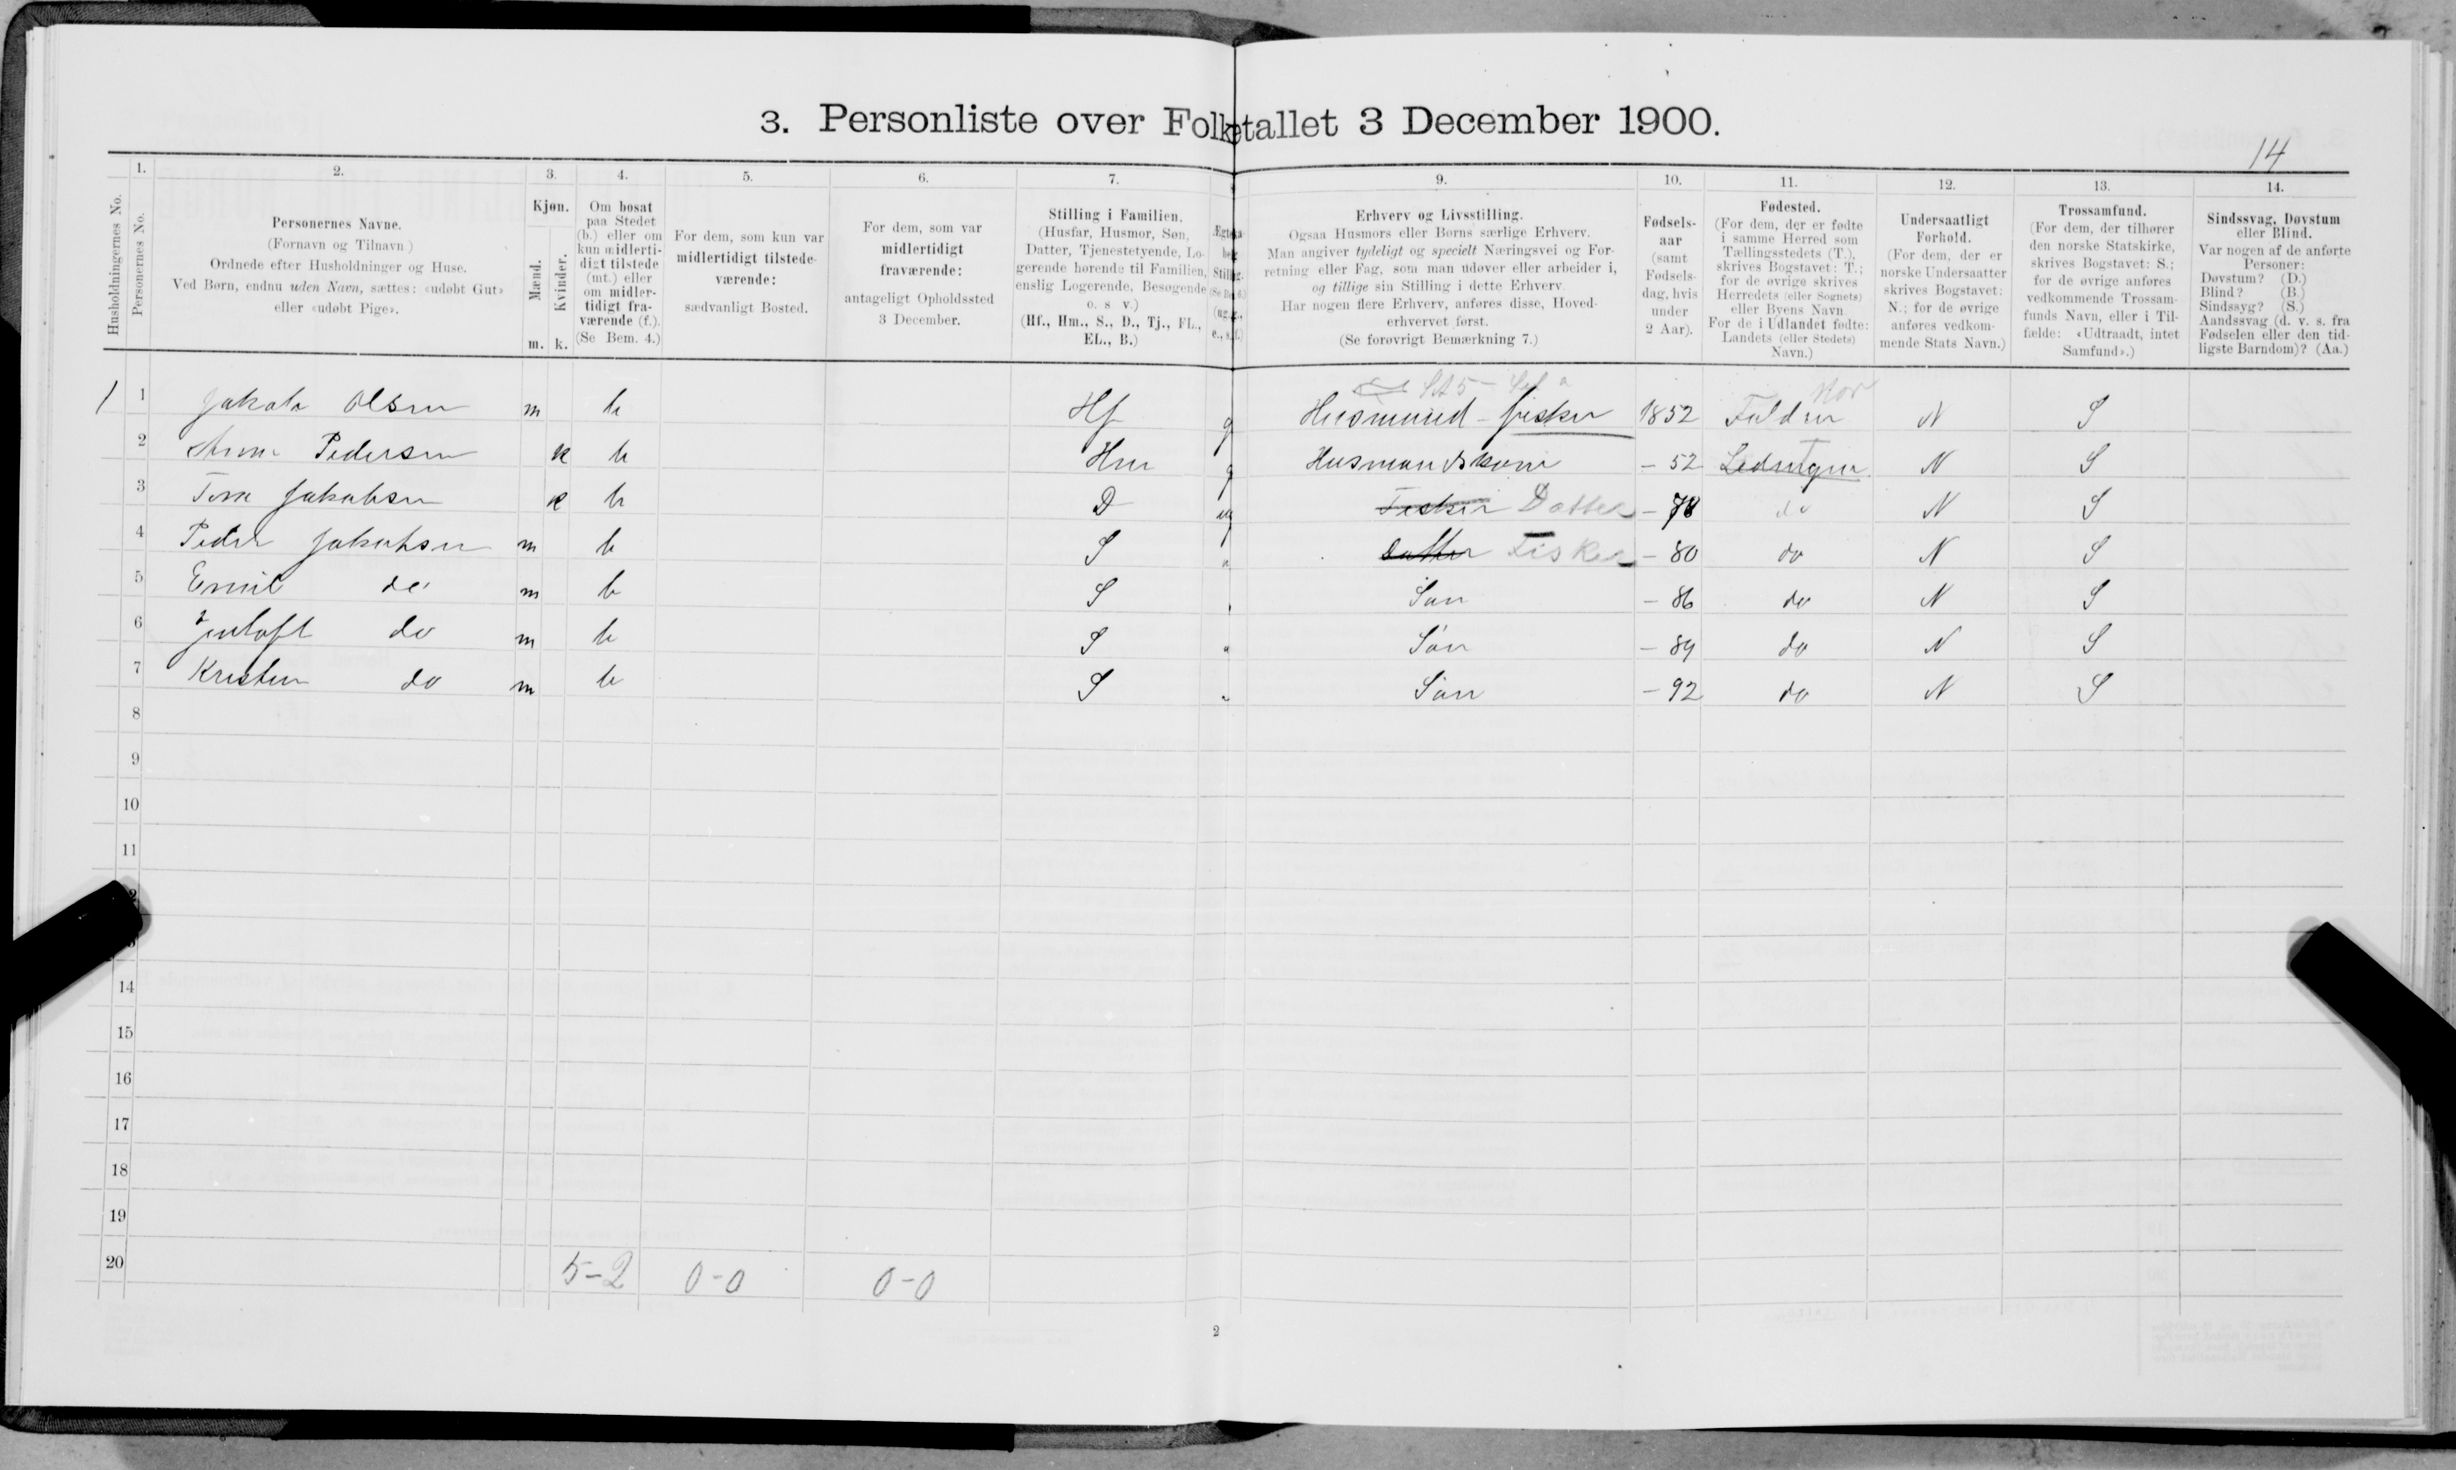 3. Personliste over Folketallet 3 December 1900.
14
Husholdningernes No.
1.
Personernes No.
2.
Personernes Navne.
(Fornavn og Tilnavn)
Ordnede efter Husholdninger og Huse.
Ved Børn, endnu uden Navn, sættes: «udøbt Gut»
eller «udøbt Pige».
3.
Kjøn.
Mænd.
Kvinder.
m. k.
4.
Om bosat
paa Stedet
(b.) eller om
kun midlerti-
digt tilstede
(mt.) eller
om midler-
tidigt fra-
værende (f.).
(Se Bem. 4.)
5.
For dem, som kun var
midlertidigt tilstede-
værende:
sædvanligt Bosted.
6.
For dem, som var
midlertidigt
fraværende:
antageligt Opholdssted
3 December.
7.
Stilling i Familien.
(Husfar, Husmor, Søn,
Datter, Tjenestetyende, Lo-
gerende hørende til Familien,
enslig Logerende, Besøgende
o. s v.)
(Hf., Hm., S., D., Tj., FL.,
EL., B.)
9.
Erhverv og Livsstilling.
Ogsaa Husmors eller Børns særlige Erhverv.
Man angiver tydeligt og specielt Næringsvei og For-
retning eller Fag, som man udøver eller arbeider i,
og tillige sin Stilling i dette Erhverv.
Har nogen flere Erhverv, anføres disse, Hoved-
erhvervet først.
(Se forøvrigt Bemærkning 7.)
10.
Fødsels-
aar
(samt
Fødsels-
dag, hvis
under
2 Aar).
11.
Fødested.
(For dem, der er fødte
i samme Herred som
Tællingsstedets (T.),
skrives Bogstavet: T.;
for de øvrige skrives
Herredets (eller Sognets)
eller Byens Navn
For de i Udlandet fødte:
Landets (eller Stedets)
Navn.)
12.
Undersaatligt
Forhold.
(For dem, der er
norske Undersaatter
skrives Bogstavet:
N.; for de øvrige
anføres vedkom-
mende Stats Navn.)
13.
Trossamfund.
(For dem, der tilhører
den norske Statskirke,
skrives Bogstavet: S.;
for de øvrige anføres
vedkommende Trossam-
funds Navn, eller i Til-
fælde: «Udtraadt, intet
Samfund».)
14.
Sindssvag, Døvstum
eller Blind.
Var nogen af de anførte
Personer:
Døvstum? (D.)
Blind? (B.)
Sindssyg? (S.)
Aandssvag (d. v. s. fra
Fødselen eller den tid-
ligste Barndom)? (Aa.)
1 1 Jakob Olsen m b Hf g Husmand - fisker 1852 N S
2 Pedersen k b Hm g Husmandskone - 52 N S
3 Jakobsen k b D ug Fisker Datter - 78 do N S
4 Peder Jakobsen m b S " Datter Fisker - 80 do N S
5 Emil do m b S Søn - 86 do N S
6 do m b S " Søn - 89 do N S
7 do m b S " Søn - 92 do N S
8
9
10
11
14
15
16
17
18
19
20 5-2 0-0 0-0
2